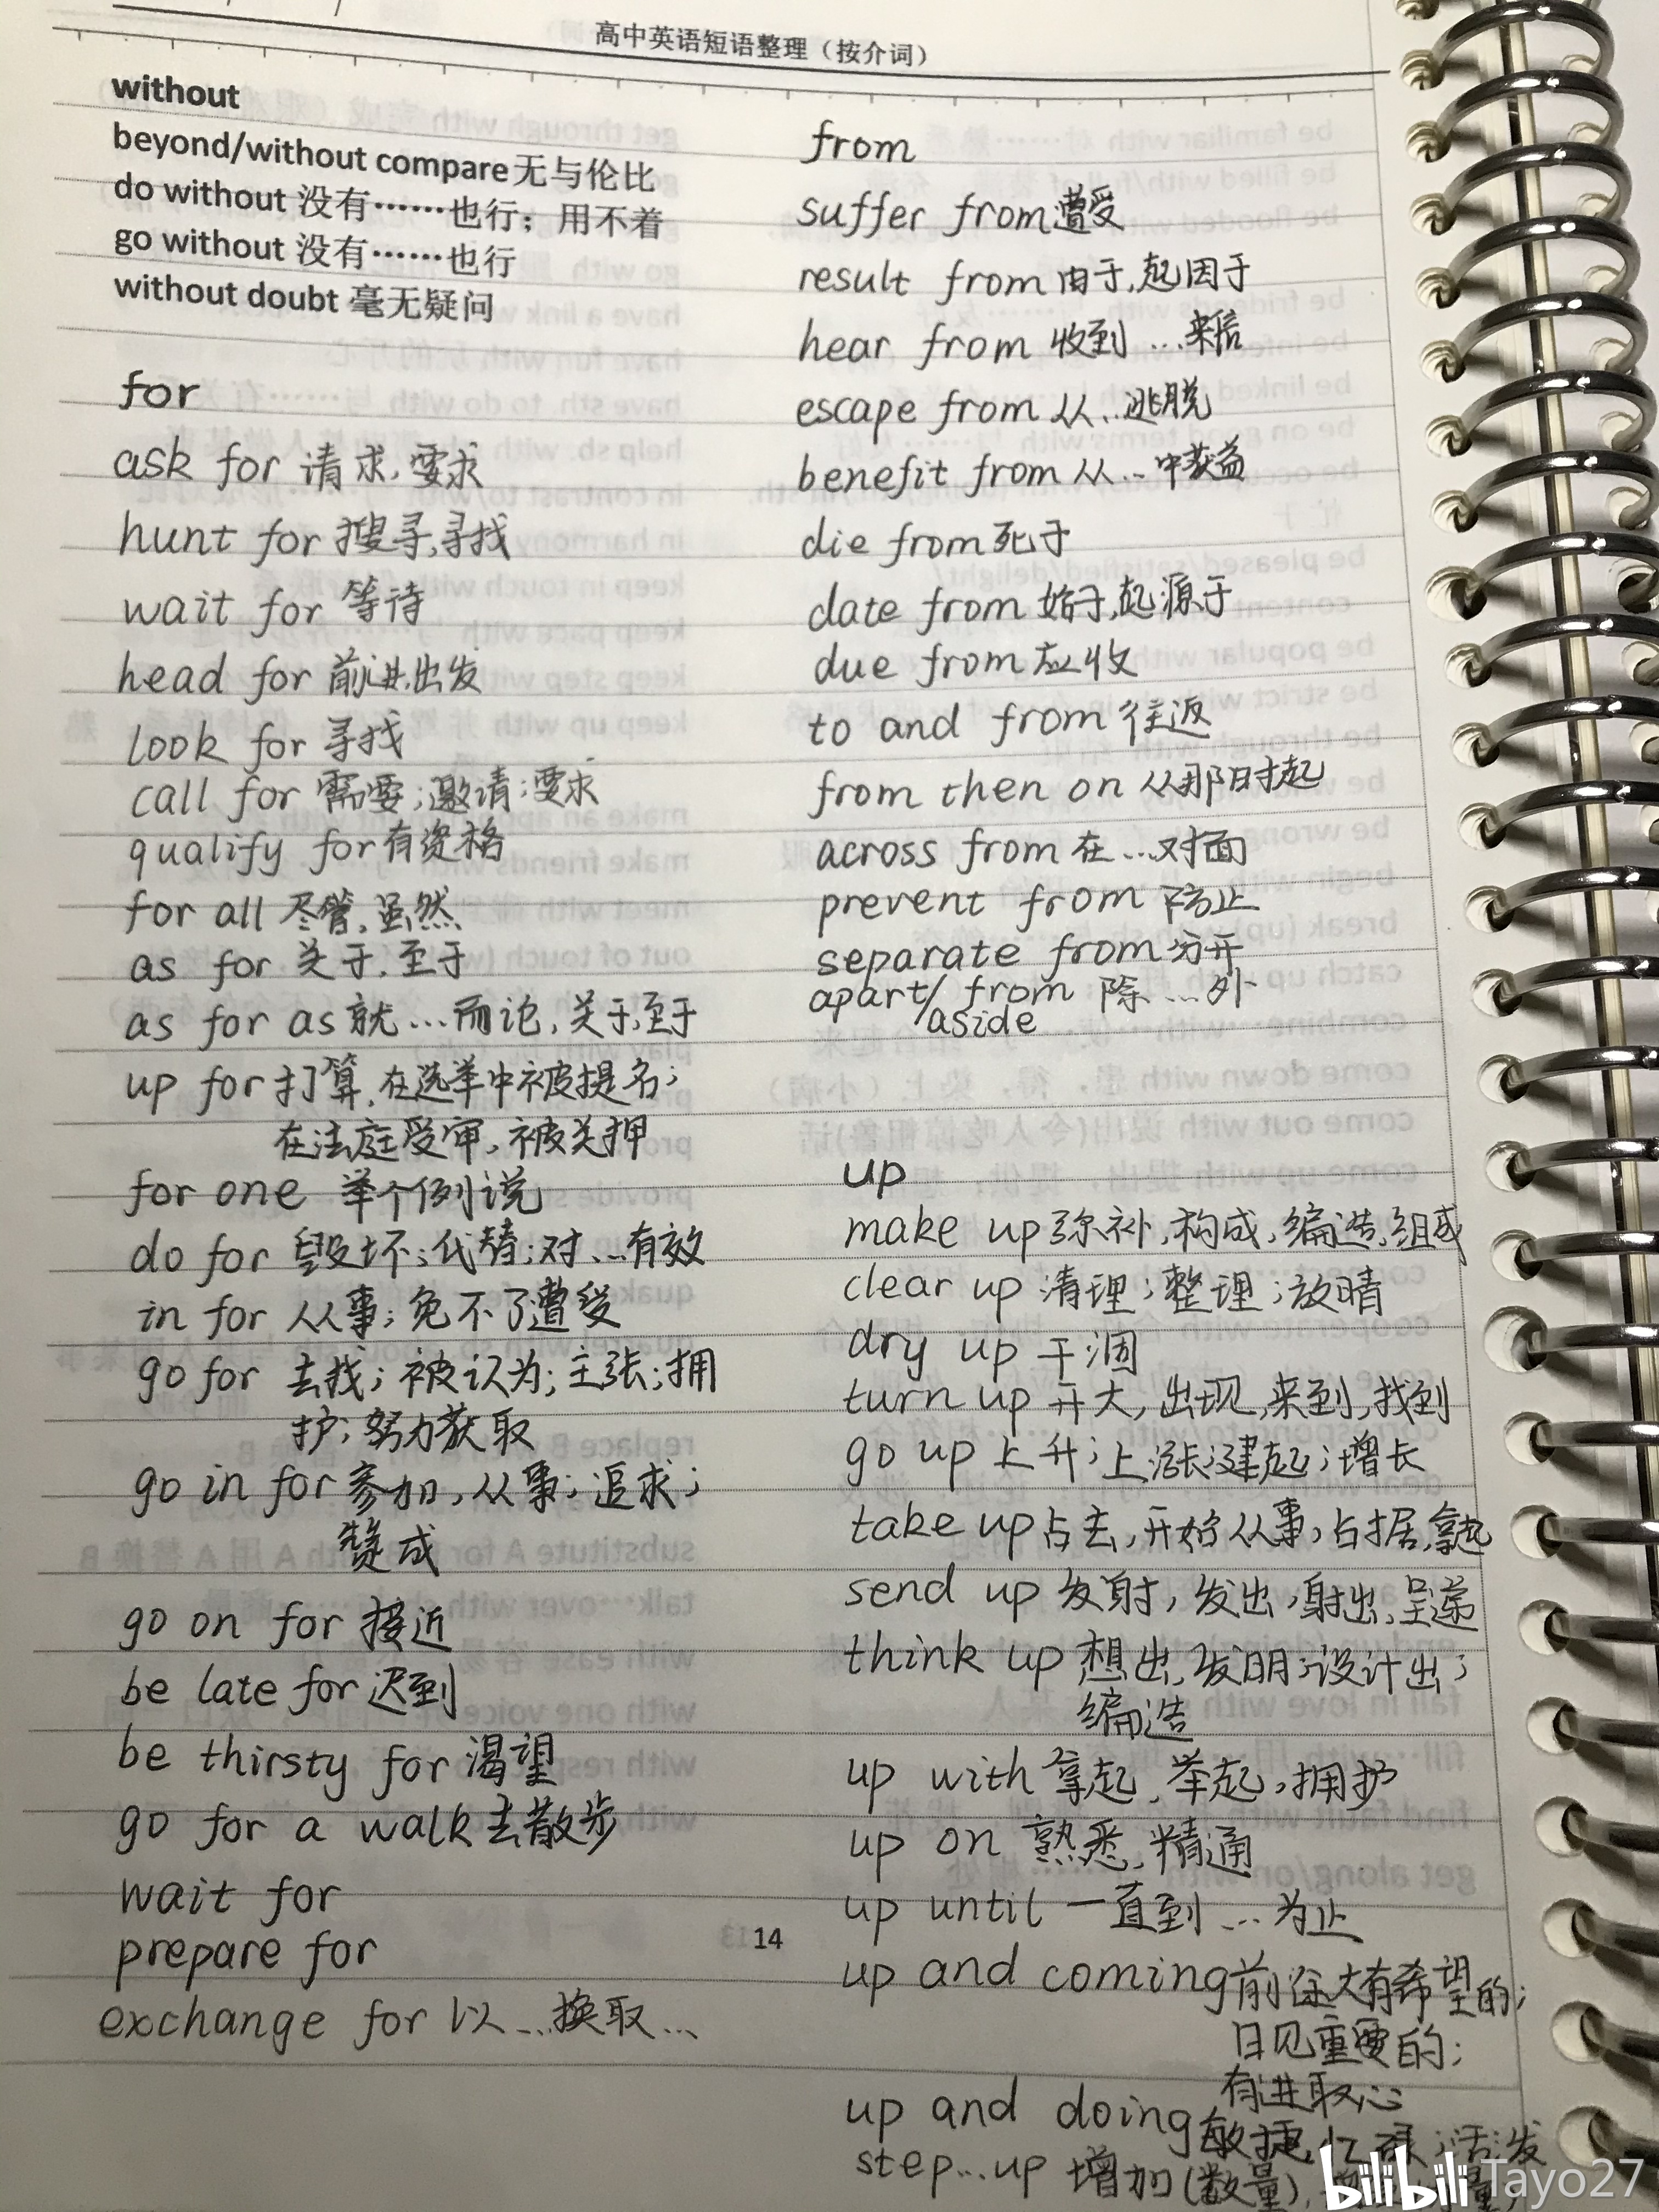 高中英语短语整理（按介词）
without
beyond/without compare 无与伦比
do without 没有……也行；用不着
go without 没有……也行
without doubt 毫无疑问
for
ask for 请求,要求
hunt for 搜寻,寻找
wait for 等待
head for 前进,出发
look for 寻找
call for 需要;邀请;要求
qualify for 有资格
for all 尽管,虽然
as for 关于,至于
as for as 就…而论,关于,至于
up for 打算,在选举中被提名;
在法庭受审,被关押
for one 举个例说
do for 毁坏;代替;对…有效
in for 从事;免不了遭受
go for 去找;被认为;主张;拥
护;努力获取
go in for 参加,从事;追求;
赞成
go on for 接近
be late for 迟到
be thirsty for 渴望
go for a walk 去散步
wait for
prepare for
exchange for 以…换取…
from
suffer from 遭受
result from 由于,起因于
hear from 收到…来信
escape from 从…逃脱
benefit from 从…中获益
die from 死于
date from 始于,起源于
due from 应收
to and from 往返
from then on 从那时起
across from 在…对面
prevent from 防止
separate from 分开
apart/ from 除…外
aside
up
make up 弥补,构成,编造,组成
clear up 清理;整理;放晴
dry up 干涸
turn up 开大,出现,来到,找到
go up 上升;上涨;建起;增长
take up 占去,开始从事,占据,拿起
send up 发射,发出,射出,呈递
think up 想出,发明;设计出;
编造
up with 拿起,举起,拥护
up on 熟悉,精通
up until 一直到…为止
up and coming 前途大有希望的;
日见重要的;
有进取心
up and doing 敏捷,忙碌;活泼
step…up 增加(数量),
14
bilibili Tayo27